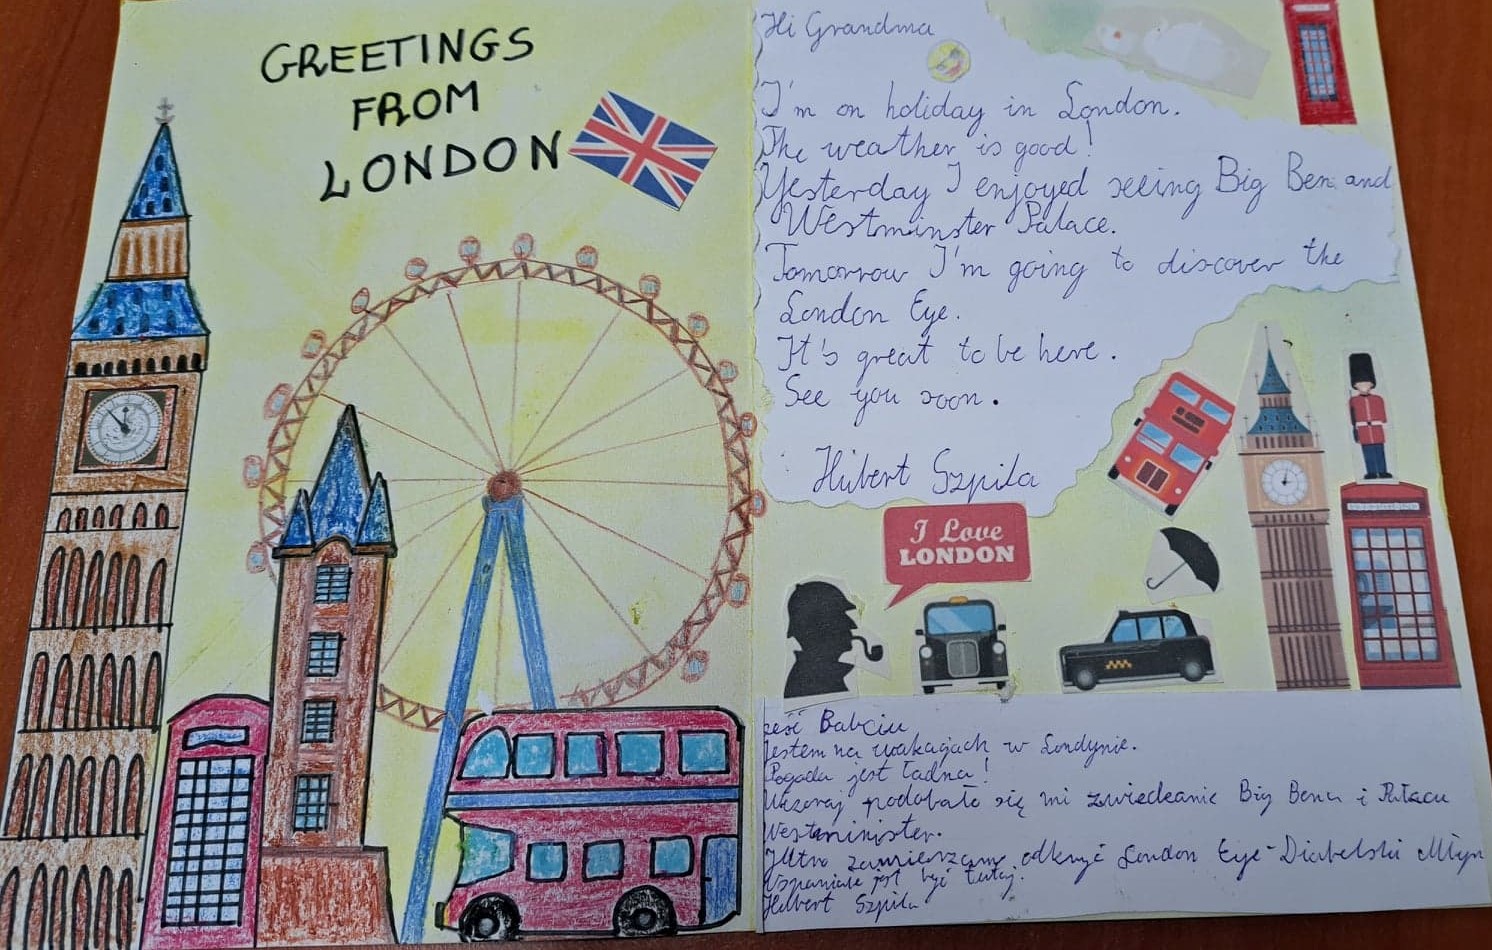 GREETINGS
FROM
LONDON
Hi Grandma
I'm on holiday in London.
The weather is good!
Yesterday I enjoyed seeing Big Ben and
Westminster Palace.
Tomorrow I'm going to discover the
London Eye.
It's great to be here.
See you soon.
Hubert Szpila
I Love
LONDON
Babciu
Jestem na wakacjach w Londynie.
Pogoda jest ładna!
Wczoraj podobało się mi zwiedzanie Big Bena i Pałacu
Westminister.
Jutro zamierzamy odkryć London Eye-Diabelski Młyn
Wspaniale jest być tutaj.
Hubert Szpila